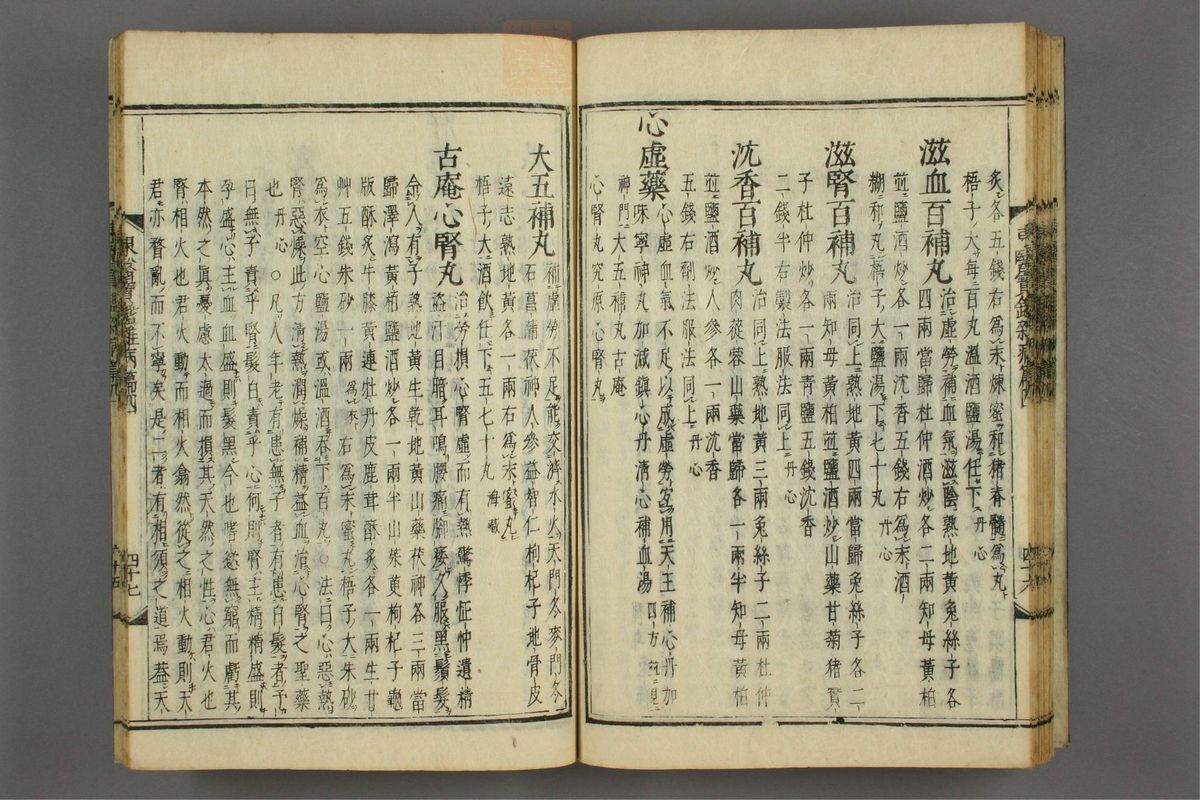 炙各五錢右為末煉蜜和猪脊髓為丸
梧子大每百丸溫酒鹽湯任下丹心
滋血百補丸治虛勞補血氣滋陰熟地黃兔絲子各
四兩當歸杜仲酒炒各二兩知母黃柏
並鹽酒炒各一兩沈香五錢右為末酒
糊和丸梧子大鹽湯下七十丸丹心
滋腎百補丸治同上熟地黃四兩當歸兔絲子各二
兩知母黃柏並鹽酒炒山藥甘菊猪實
子杜仲炒各一兩青鹽五錢沈香
二錢半右製法服法同上丹心
沈香百補丸治同上熟地黃三兩兔絲子二兩杜仲
肉蓯蓉山藥當歸各一兩半知母黃柏
並鹽酒炒人參各一兩沈香
五錢右劑法服法同上丹心
心虛藥心虛血氣不足以成虛勞宜用天王補心丹加
味寧神丸加減鎮心丹清心補血湯四方並見
神門大五補丸古庵
心腎丸究原心腎丸
大五補丸補虛勞不足能交濟水火天門冬麥門冬
石菖蒲茯神人參益智仁枸杞子地骨皮
遠志熟地黃各一兩右為末蜜丸
梧子大酒飲任下五七十丸海藏
古庵心腎丸治勞損心腎虛而有熱驚悸怔忡遺精
盜汗目暗耳鳴腰痛脚痿久服黑鬚髮
令人有子熟地黃生乾地黃山藥茯神各三兩當
歸澤瀉黃柏鹽酒炒各一兩半山茱萸枸杞子龜
版酥炙牛膝黃連牡丹皮鹿茸酥炙各一兩生甘
艸五錢朱砂一兩為衣右為末蜜丸梧子大朱砂
為衣空心鹽湯或溫酒吞下百丸○法曰心惡熱
腎惡燥此方清熱潤燥補精益血治心腎之聖藥
也丹心○凡人年老有患無子者有患白髮者予
曰無子責乎腎髮白責乎心何則腎主精精盛則
孕盛心主血血盛則髮黑今也嗜慾無窮而虧其
本然之眞憂慮太過而損其天然之性心君火也
腎相火也君火動而相火翕然從之相火動則天
君亦瞀亂而不寧矣是二者有相須之道焉蓋天
東醫寶鑑雜病篇四
四十七